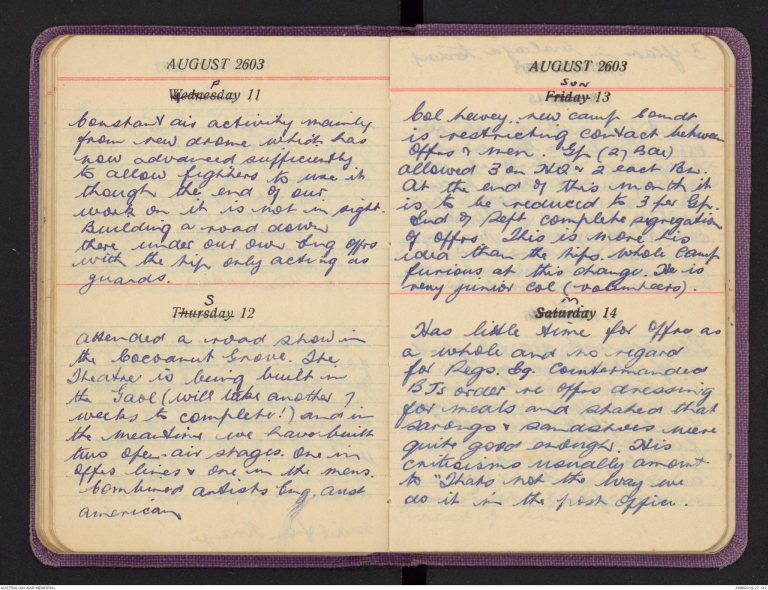 AUGUST 2603
F
Wednesday 11
Constant air activity mainly
from new drome which has
now advanced sufficiently
to allow fighters to use it
though the end of our
work on it is not in sight.
Building a road down
there under our own Eng offrs
with the Nip only acting as
guards.
S
Thursday 12
Attended a road show in
the Cocoanut Grove. The
Theatre is being built in
the Gaol (will take another 7
weeks to complete!) and in
the meantime we have built
two open-air stages. One in
offrs lines & one in the mens.
Combined artists Eng. aust
american
AUGUST 2603
SUN
Friday 13
Col Newey.. new camp Comdt
is restricting contact between
Offrs & men. Gp (27 Bde)
allowed 3 on HQ & 2 each Bn.
At the end of this month it
is to be reduced to 3 per Gp.
End of Sept complete segregation
of offrs. This is more his
idea than the Nips. Whole camp
furious at this change. He is
very junior Col (volunteers).
M
Saturday 14
Has little time for Offrs as
a whole and no regard
for Regs. Eg. Countermanded
BJs order re offrs dressing
for meals and stated that
sarongs & sandshoes were
quite good enough. His
criticisms usually amount
to "Thats not the way we
do it in the post office.
AUSTRALIAN WAR MEMORIAL